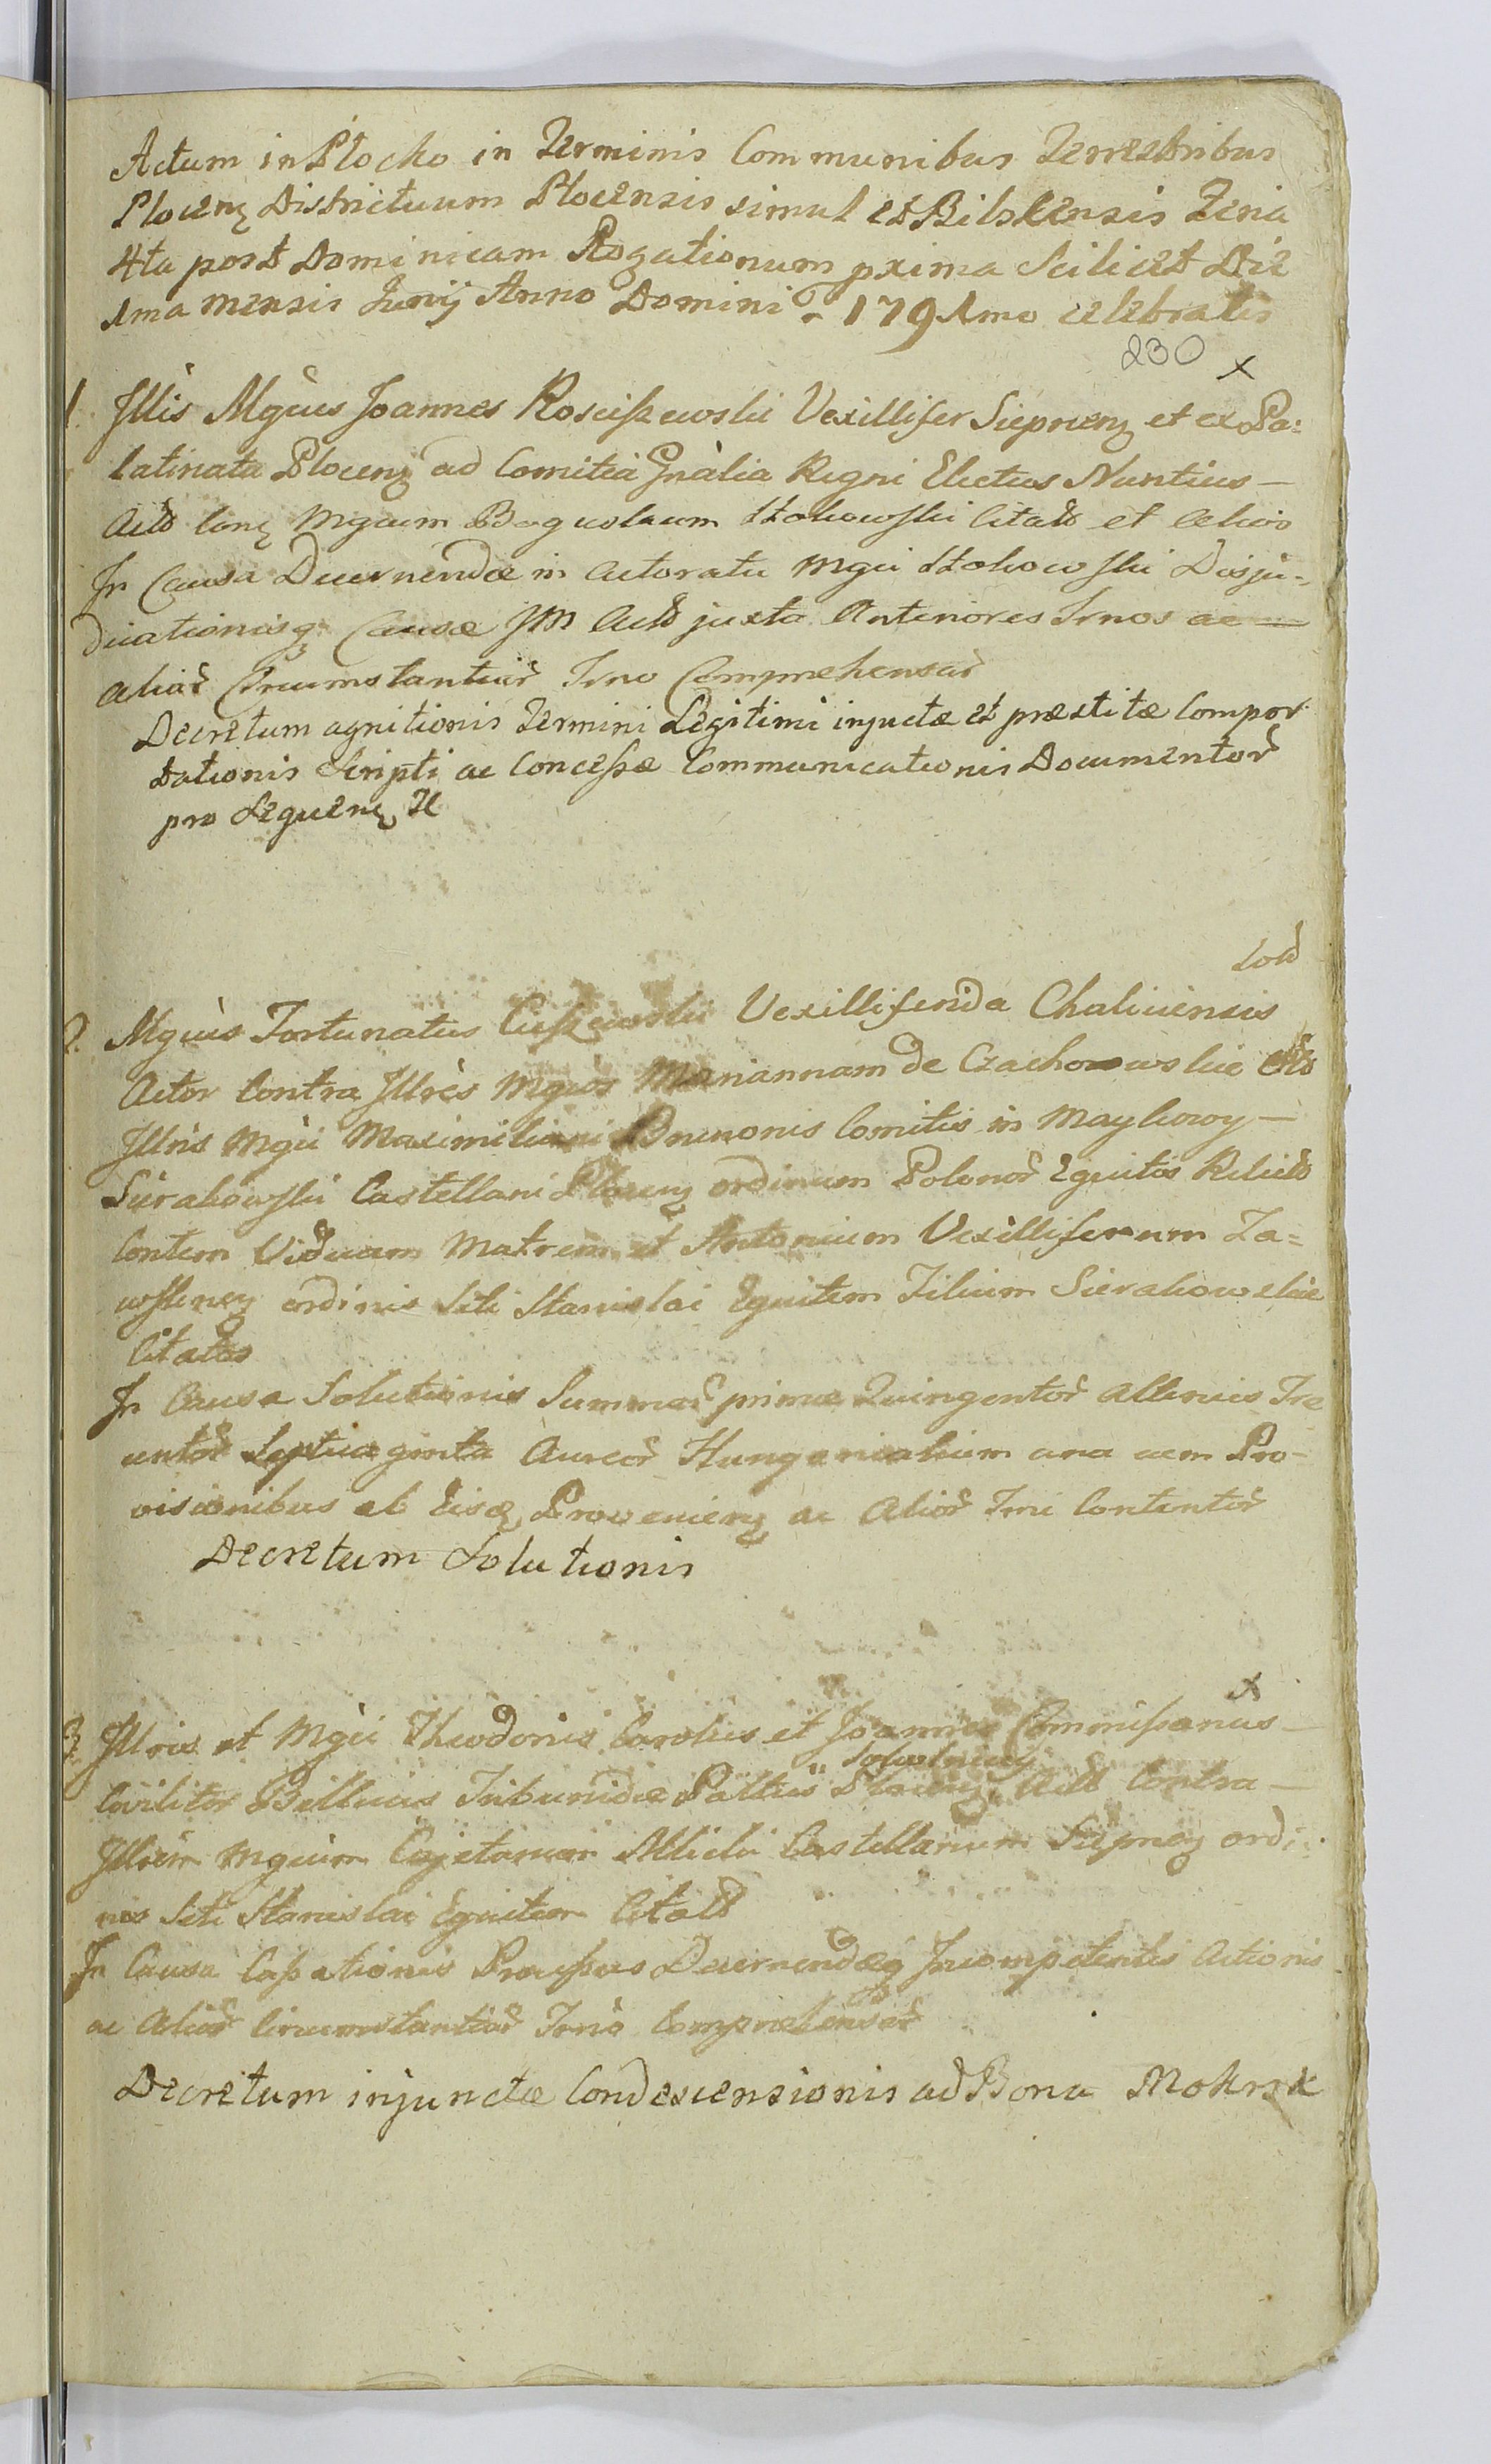 Actum in Płocko in Terminis Communibus Terrestribus
Plocenȝ Districtuum Plocensis simul et Bilscensis Feria
4ta post Dominicam Rogationum pxima Scilicet Die
1ma mensis Junij Anno Domini 1791mo celebratis
230 x
1. Jllis Mgcus Joannes Rosciszewski Vexillifer Siepnenȝ et ex Pa:
latinata Plocenȝ ad Comitia Gnalia Regni Electus Nuntius —
Act Conȝ Mgcum Boguslaum Stokowski Citat et Alios
In Causa Decernendæ in Actoratu Mgci Stokowski Disju-
dicationisqȝ Causæ Act juxta Anteriores Trnos ac —
aliar Circumstantiar Trno Comprehensar
Decretum agnitionis Termini Legitimi injuctæ et præstitæ Compor
tationis Scripti ac Concessæ Communicationis Documentor
pro Sequenȝ
sold
2. Mgcus Fortunatus Vexilliferida Chalinensis
Actor Contra Jllres Mgcos Mariannam de Czachowskie
Jllris Mgci Maximiliani Brunonis Comitis in Maykowy —
Sierakowski Castellani Plocenȝ ordinum Polonor Equitis Relict
Contem Viduam Matrem et Antonium Vexilliferum Za=
wskrnenȝ ordinis Scti Stanislai Equitem Filium Sierakowskie
Citatos
In Causa Solutionis Summar primæ Quingentor Alterius Tre
centor Septuaginta Aureor Hungaricalium una cum Pro-
visionibus ab Eisȝ Provenienȝ ac Alior Trni Contentor
Decretum Solutionis
x
3. Jllris et Mgci Theodorus Carolus et Joannes Commissarius —
Civilitor Bellicus Tribunidæ Pallus Plocenȝ Act Contra —
Jllrem Mgcum Cajetanum Castellanum Siepnenȝ ordi:
nis Scti Stanislai Equitem Citatt
In Causa Cassationis Processus Decernendæqȝ Incompetentis Actionis
ac Aliar Circumstantiar Trno Comprehensar
Decretum injunctæ Condescensionis ad Bona Mokrsk